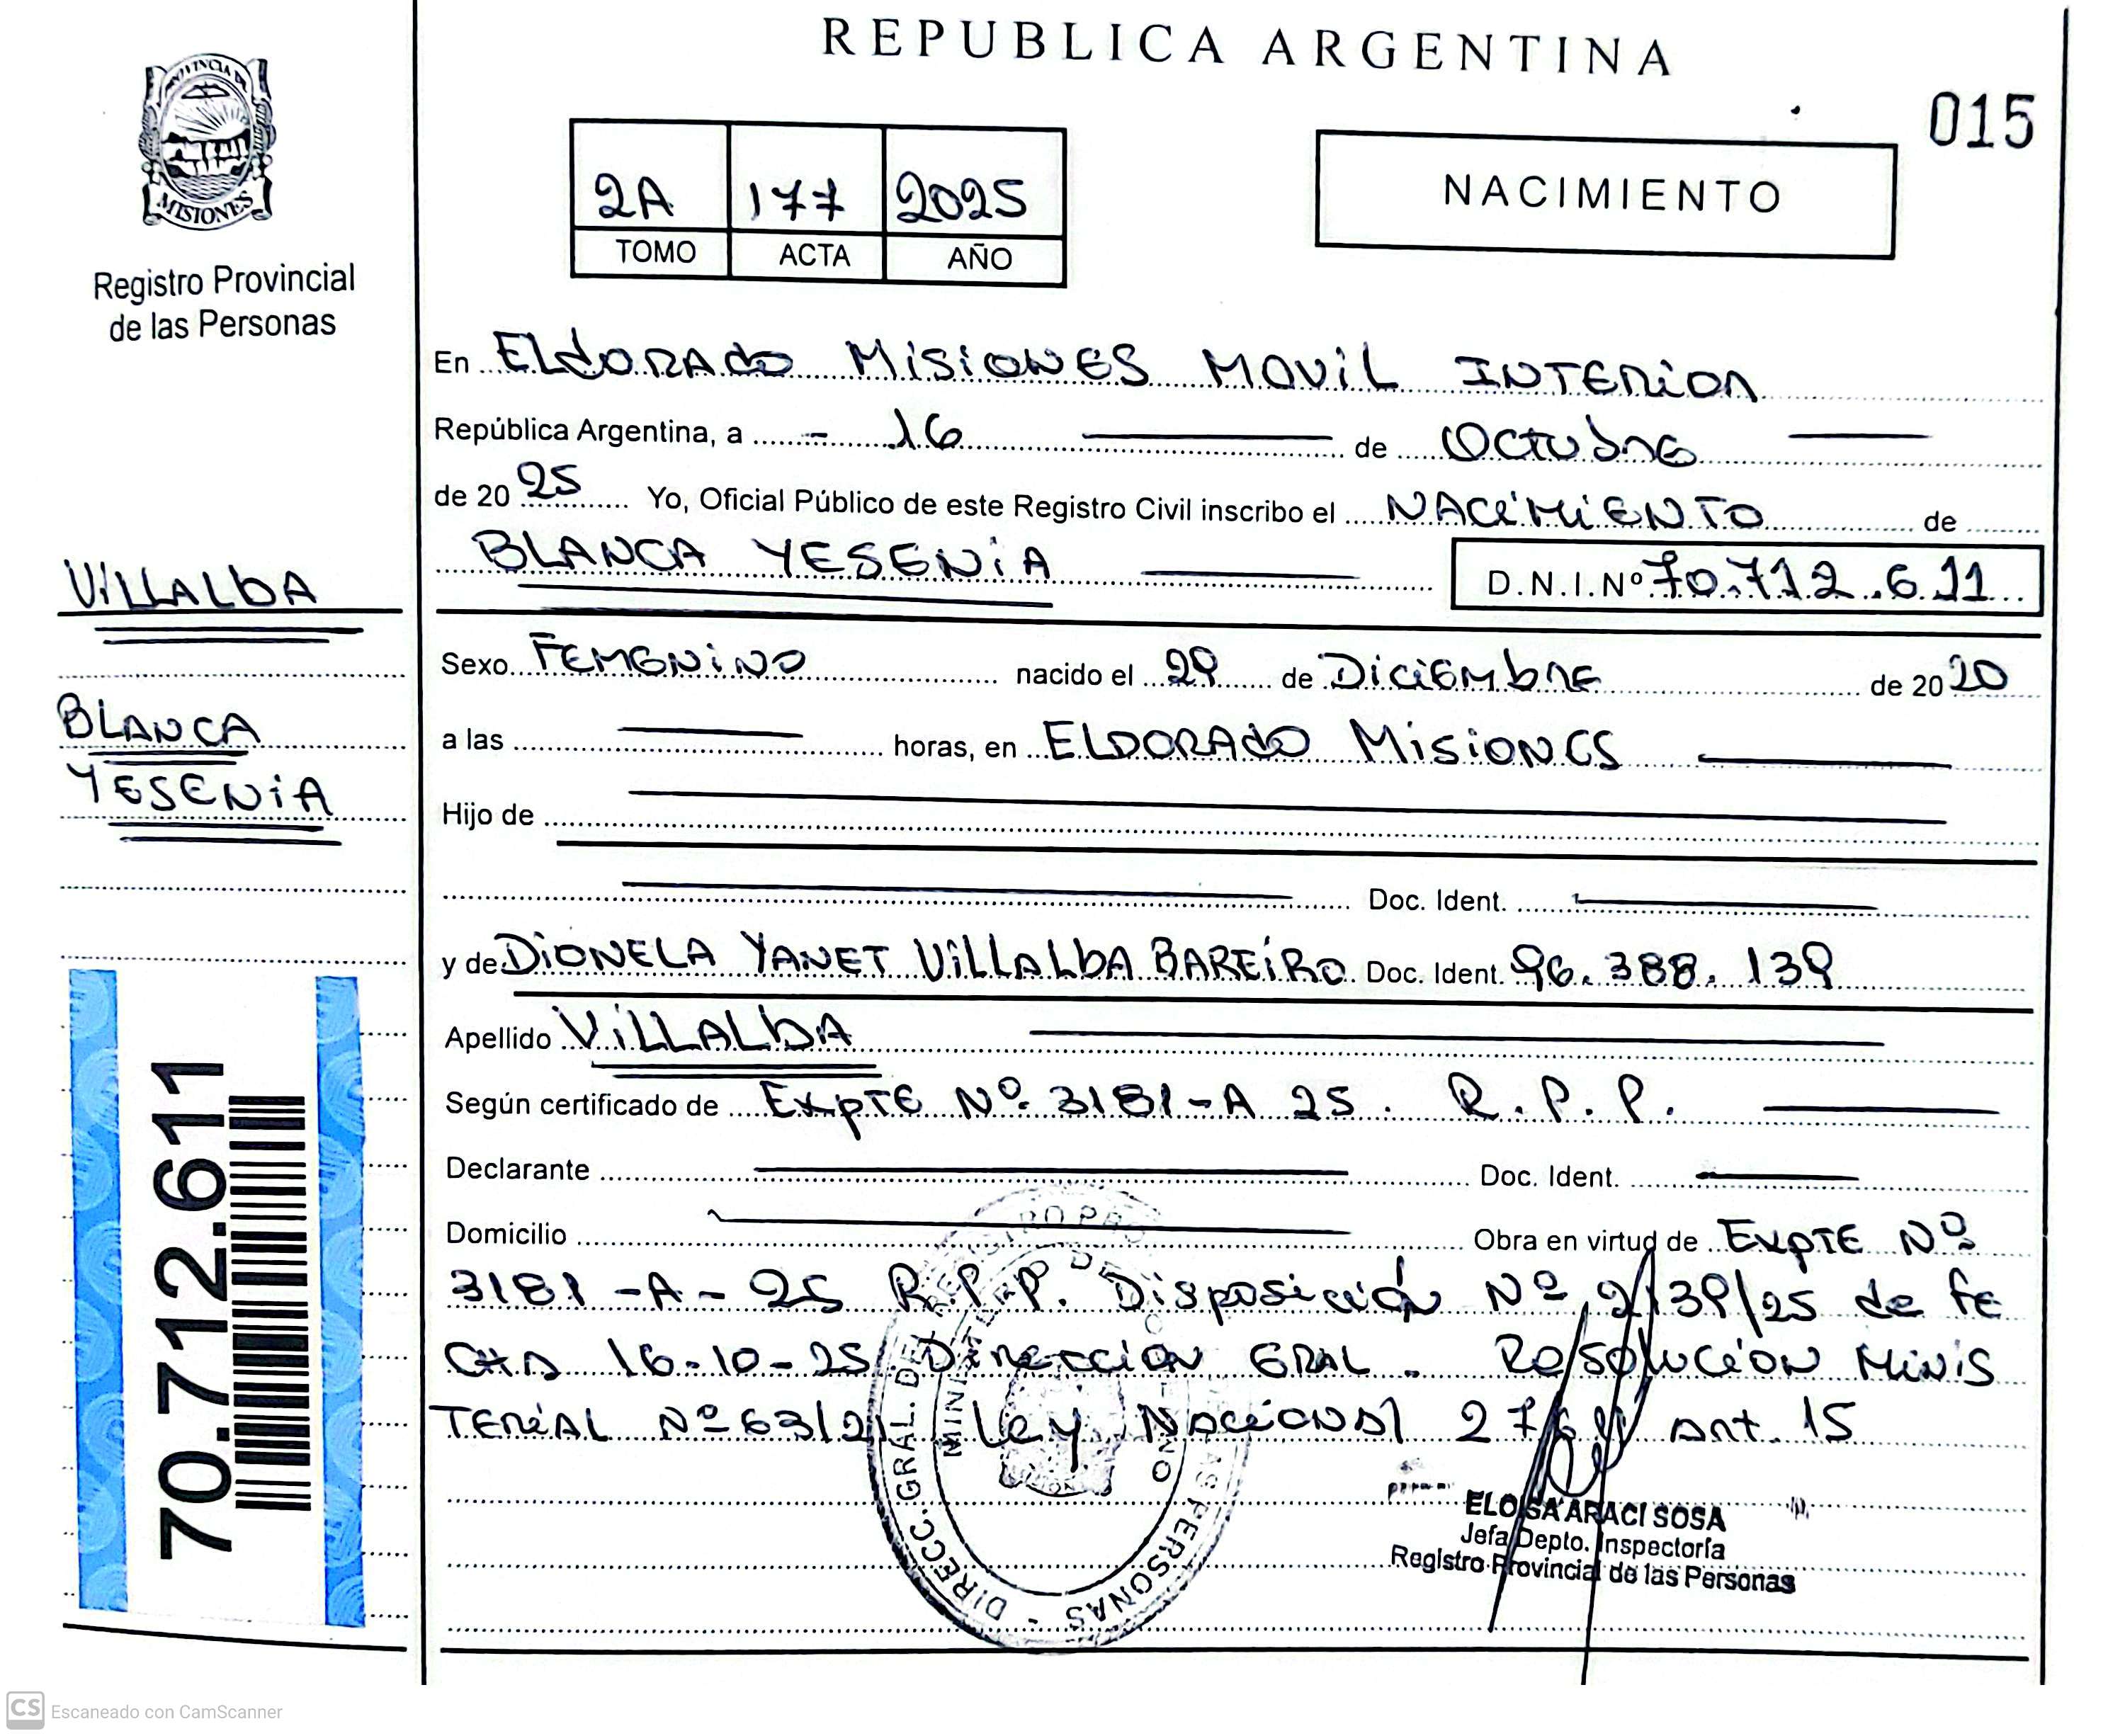 REPUBLICA ARGENTINA
015
PROVINCIA DE
MISIONES
Registro Provincial
de las Personas
2A 177 2025
TOMO ACTA AÑO
NACIMIENTO
En ELDORADO MISIONES MOVIL INTERIOR
República Argentina, a - 16 de Octubre
de 2025 Yo, Oficial Público de este Registro Civil inscribo el NACIMIENTO de
BLANCA YESENIA D.N.I.Nº 70.712.611
VILLALBA
BLANCA
YESENIA
Sexo FEMENINO nacido el 29 de Diciembre de 2020
a las horas, en ELDORADO MISIONES
Hijo de
Doc. Ident.
y de DIONELA YANET VILLALBA BAREIRO Doc. Ident. 96.388.139
Apellido VILLALBA
Según certificado de EXPTE Nº 3181-A 25. R.P.P.
Declarante Doc. Ident.
Domicilio Obra en virtud de EXPTE Nº
3181-A-25 R.P.P. Disposición Nº 2139/25 de fe
cha 16-10-25 Dirección GRAL. Resolución Minis
TERIAL Nº 63/21 Ley Nacional art. 15
70.712.611
DIRECC. GRAL. DEL REGISTRO PERSONAS
ELOISA ARACI SOSA
Jefa Depto. Inspectoría
Registro Provincial de las Personas
CS Escaneado con CamScanner